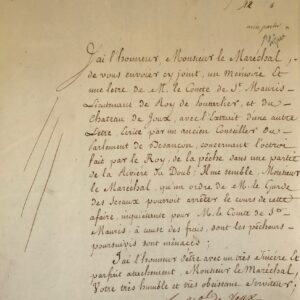 J'ai l'honneur, Monsieur le Maréchal,
de vous envoier cy joint, un Mémoire et
une letre de M. le Comte de St. Mauris
Lieutenant de Roy de Pontarlier, et du
Chateau de Joux, avec l'Extrait d'une autre
Lettre, écrite par un ancien Conseiller du
Parlement de Besançon, concernant l'octroi
fait par le Roy, de la pêche dans une partie
de la Riviere du Doub: Il me semble, Monsieur
le Maréchal, qu'un ordre de M. le Garde
des Sceaux pouroit arrêter le cours de cette
afaire, inquietante pour M. le Comte de St.
Mauris, à cause des frais, dont les pêcheurs
poursuivis sont menacés;
J'ai l'honneur d'être avec un très sincère et
parfait attachement, Monsieur le Maréchal,
Votre très humble et très obéissant Serviteur;